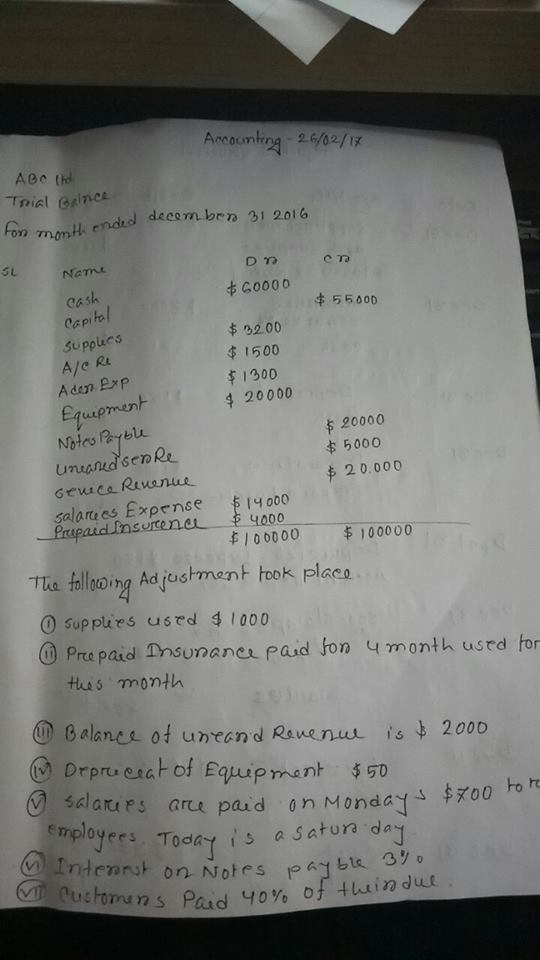 Accounting - 26/02/17
ABC ltd
Trial Balnce
For month ended december 31 2016
SL Name Dr Cr
Cash $60000
Capital $55000
Supplies $3200
A/C Re $1500
Aden Exp $1300
Equipment $20000
Notes Payble $20000
unearned Ser Re $5000
Service Revenue $20.000
Salaries Expense $14000
Prepaid Insurence $4000
$100000 $100000
The following Adjustment took place
(i) Supplies used $1000
(ii) Prepaid Insurance paid for 4 month used for
this month
(iii) Balance of unearnd Revenue is $ 2000
(iv) Depriciat of Equipment $50
(v) Salaries are paid on Mondays $700 to
employees. Today is a Satur day
(vi) Interest on Notes payble 3%
(vii) Customers Paid 40% of their due.